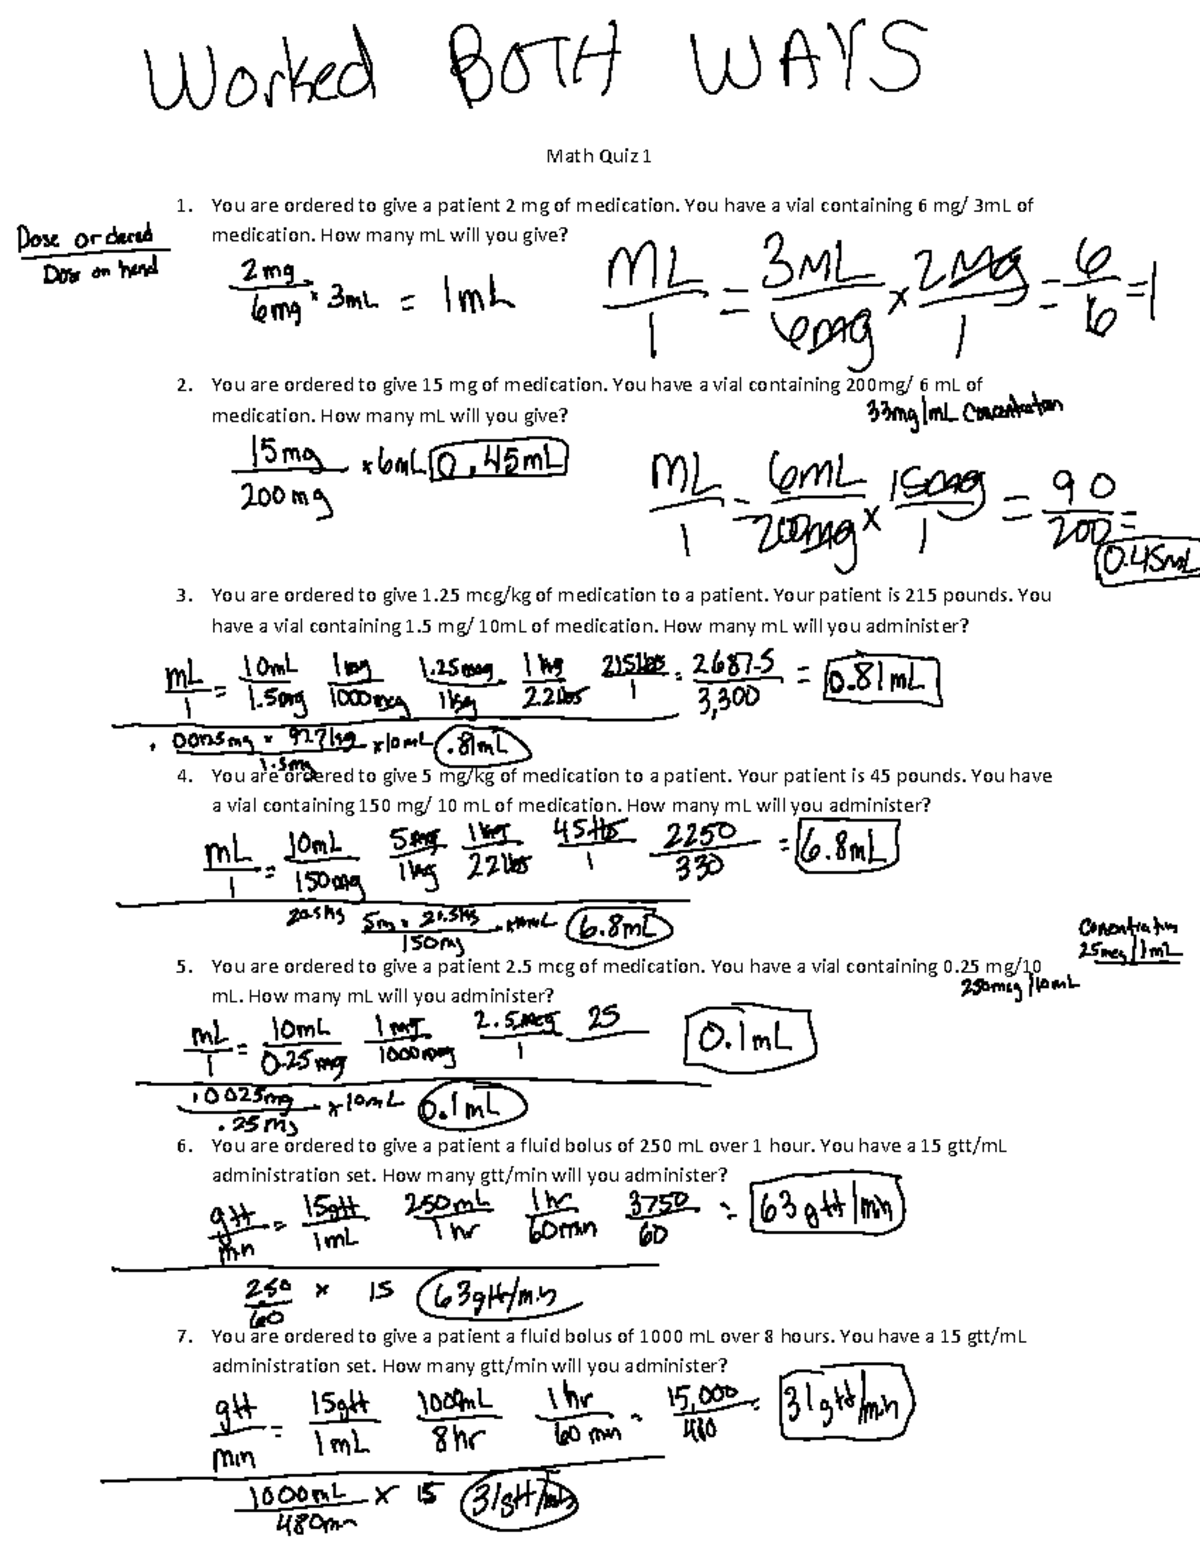 Worked BOTH WAYS
Math Quiz 1
1. You are ordered to give a patient 2 mg of medication. You have a vial containing 6 mg/ 3mL of
medication. How many mL will you give?
Dose ordered
Dose on hand
2mg / 6mg × 3mL = 1mL
mL / 1 = 3mL / 6mg × 2mg / 1 = 6 / 6 = 1
2. You are ordered to give 15 mg of medication. You have a vial containing 200mg/ 6 mL of
medication. How many mL will you give?
33mg/mL Concentration
15mg / 200mg × 6mL 0.45mL
mL / 1 = 6mL / 200mg × 15mg / 1 = 90 / 200 = 0.45mL
3. You are ordered to give 1.25 mcg/kg of medication to a patient. Your patient is 215 pounds. You
have a vial containing 1.5 mg/ 10mL of medication. How many mL will you administer?
mL / 1 = 10mL / 1.5mg 1mg / 1000mcg 1.25mcg / 1kg 1kg / 2.2lbs 215lbs / 1 = 2687.5 / 3,300 = 0.81mL
× 10mL .81mL
1.5mg
4. You are ordered to give 5 mg/kg of medication to a patient. Your patient is 45 pounds. You have
a vial containing 150 mg/ 10 mL of medication. How many mL will you administer?
mL / 1 = 10mL / 150mg 5mg / 1kg 1kg / 2.2lbs 45lbs / 1 2250 / 330 = 6.8mL
20.5kg / 150mg 6.8mL
5. You are ordered to give a patient 2.5 mcg of medication. You have a vial containing 0.25 mg/10
mL. How many mL will you administer?
Concentration
25mcg/1mL
250mcg/10mL
mL / 1 = 10mL / 0.25mg 1mg / 1000mcg 2.5mcg / 1 25 0.1mL
.0025mg / .25mg × 10mL 0.1mL
6. You are ordered to give a patient a fluid bolus of 250 mL over 1 hour. You have a 15 gtt/mL
administration set. How many gtt/min will you administer?
gtt / min = 15gtt / 1mL 250mL / 1hr 1hr / 60min 3750 / 60 = 63gtt/min
250 / 60 × 15 63gtt/min
7. You are ordered to give a patient a fluid bolus of 1000 mL over 8 hours. You have a 15 gtt/mL
administration set. How many gtt/min will you administer?
gtt / min = 15gtt / 1mL 1000mL / 8hr 1hr / 60min = 15,000 / 480 = 31gtt/min
1000mL / 480min × 15 31gtt/min